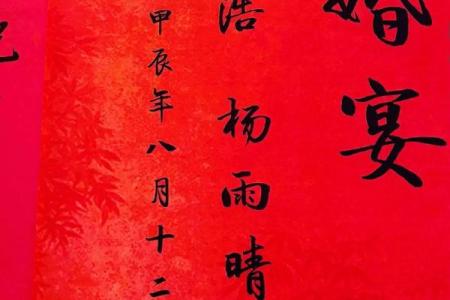 婚宴
浩 杨雨晴
甲辰年八月十二